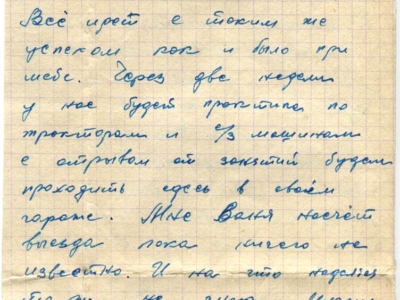 Всё идет с таким же
успехом как и было при
тебе. Через две недели
у нас будет практика по
тракторам и с/з машинам
с отрывом от занятий будем
проходить здесь в своём
гараже. Мне Ваня насчёт
выезда пока ничего не
известно. И на что надеяться
не знаю